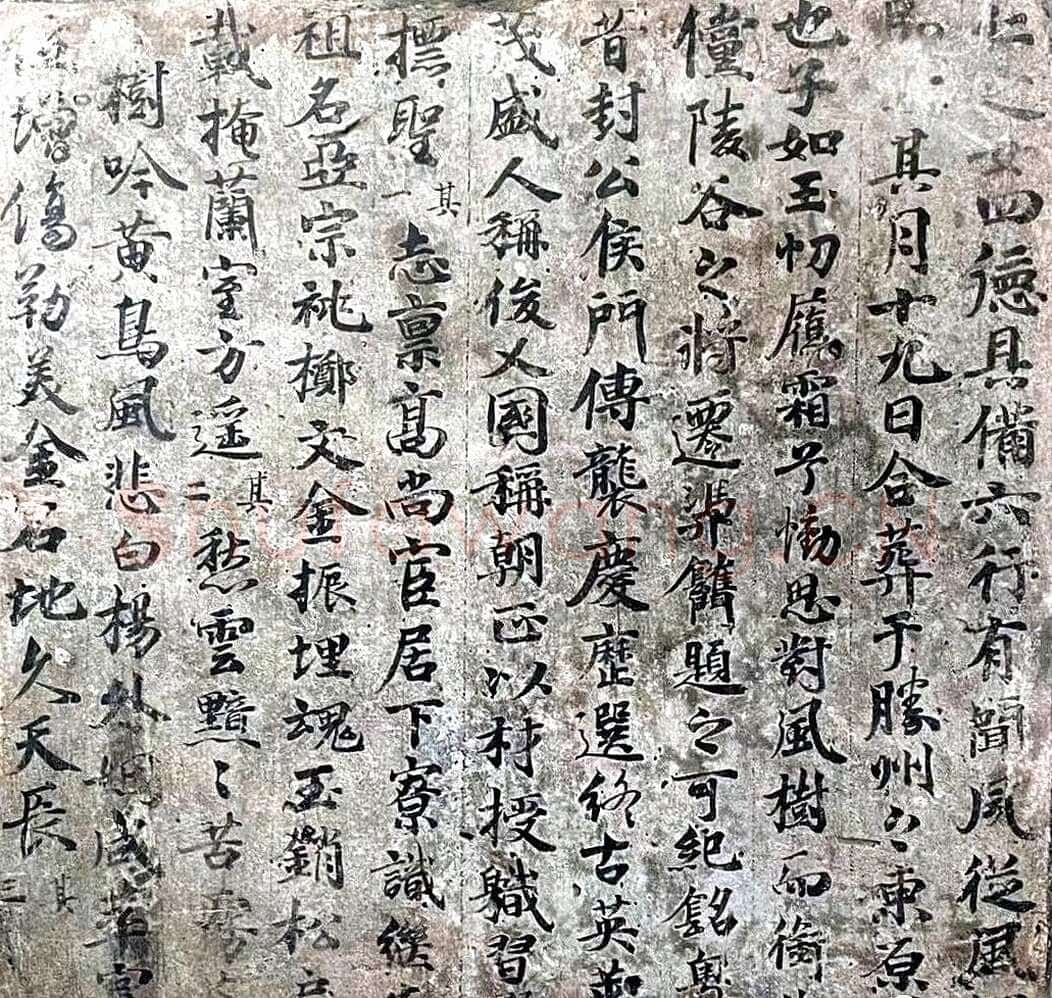 四德具備六行有聞夙從風
其月十九日合葬于勝州之東原
也子如玉切履霜予慟思對風樹而銜
僮陵谷之將遷冀舊題之可紀銘粵
昔封公侯門傳襲慶歷選終古英
茂盛人稱俊乂國稱朝匹以材授職習
摽聖其一志禀高尚宦居下寮識
祖名亞宗祧擲文金振埋魂玉銷松
載掩蘭室方遥其二愁雲黯〻苦
樹吟黄鳥風悲白楊
增傷勒美金石地久天長其三